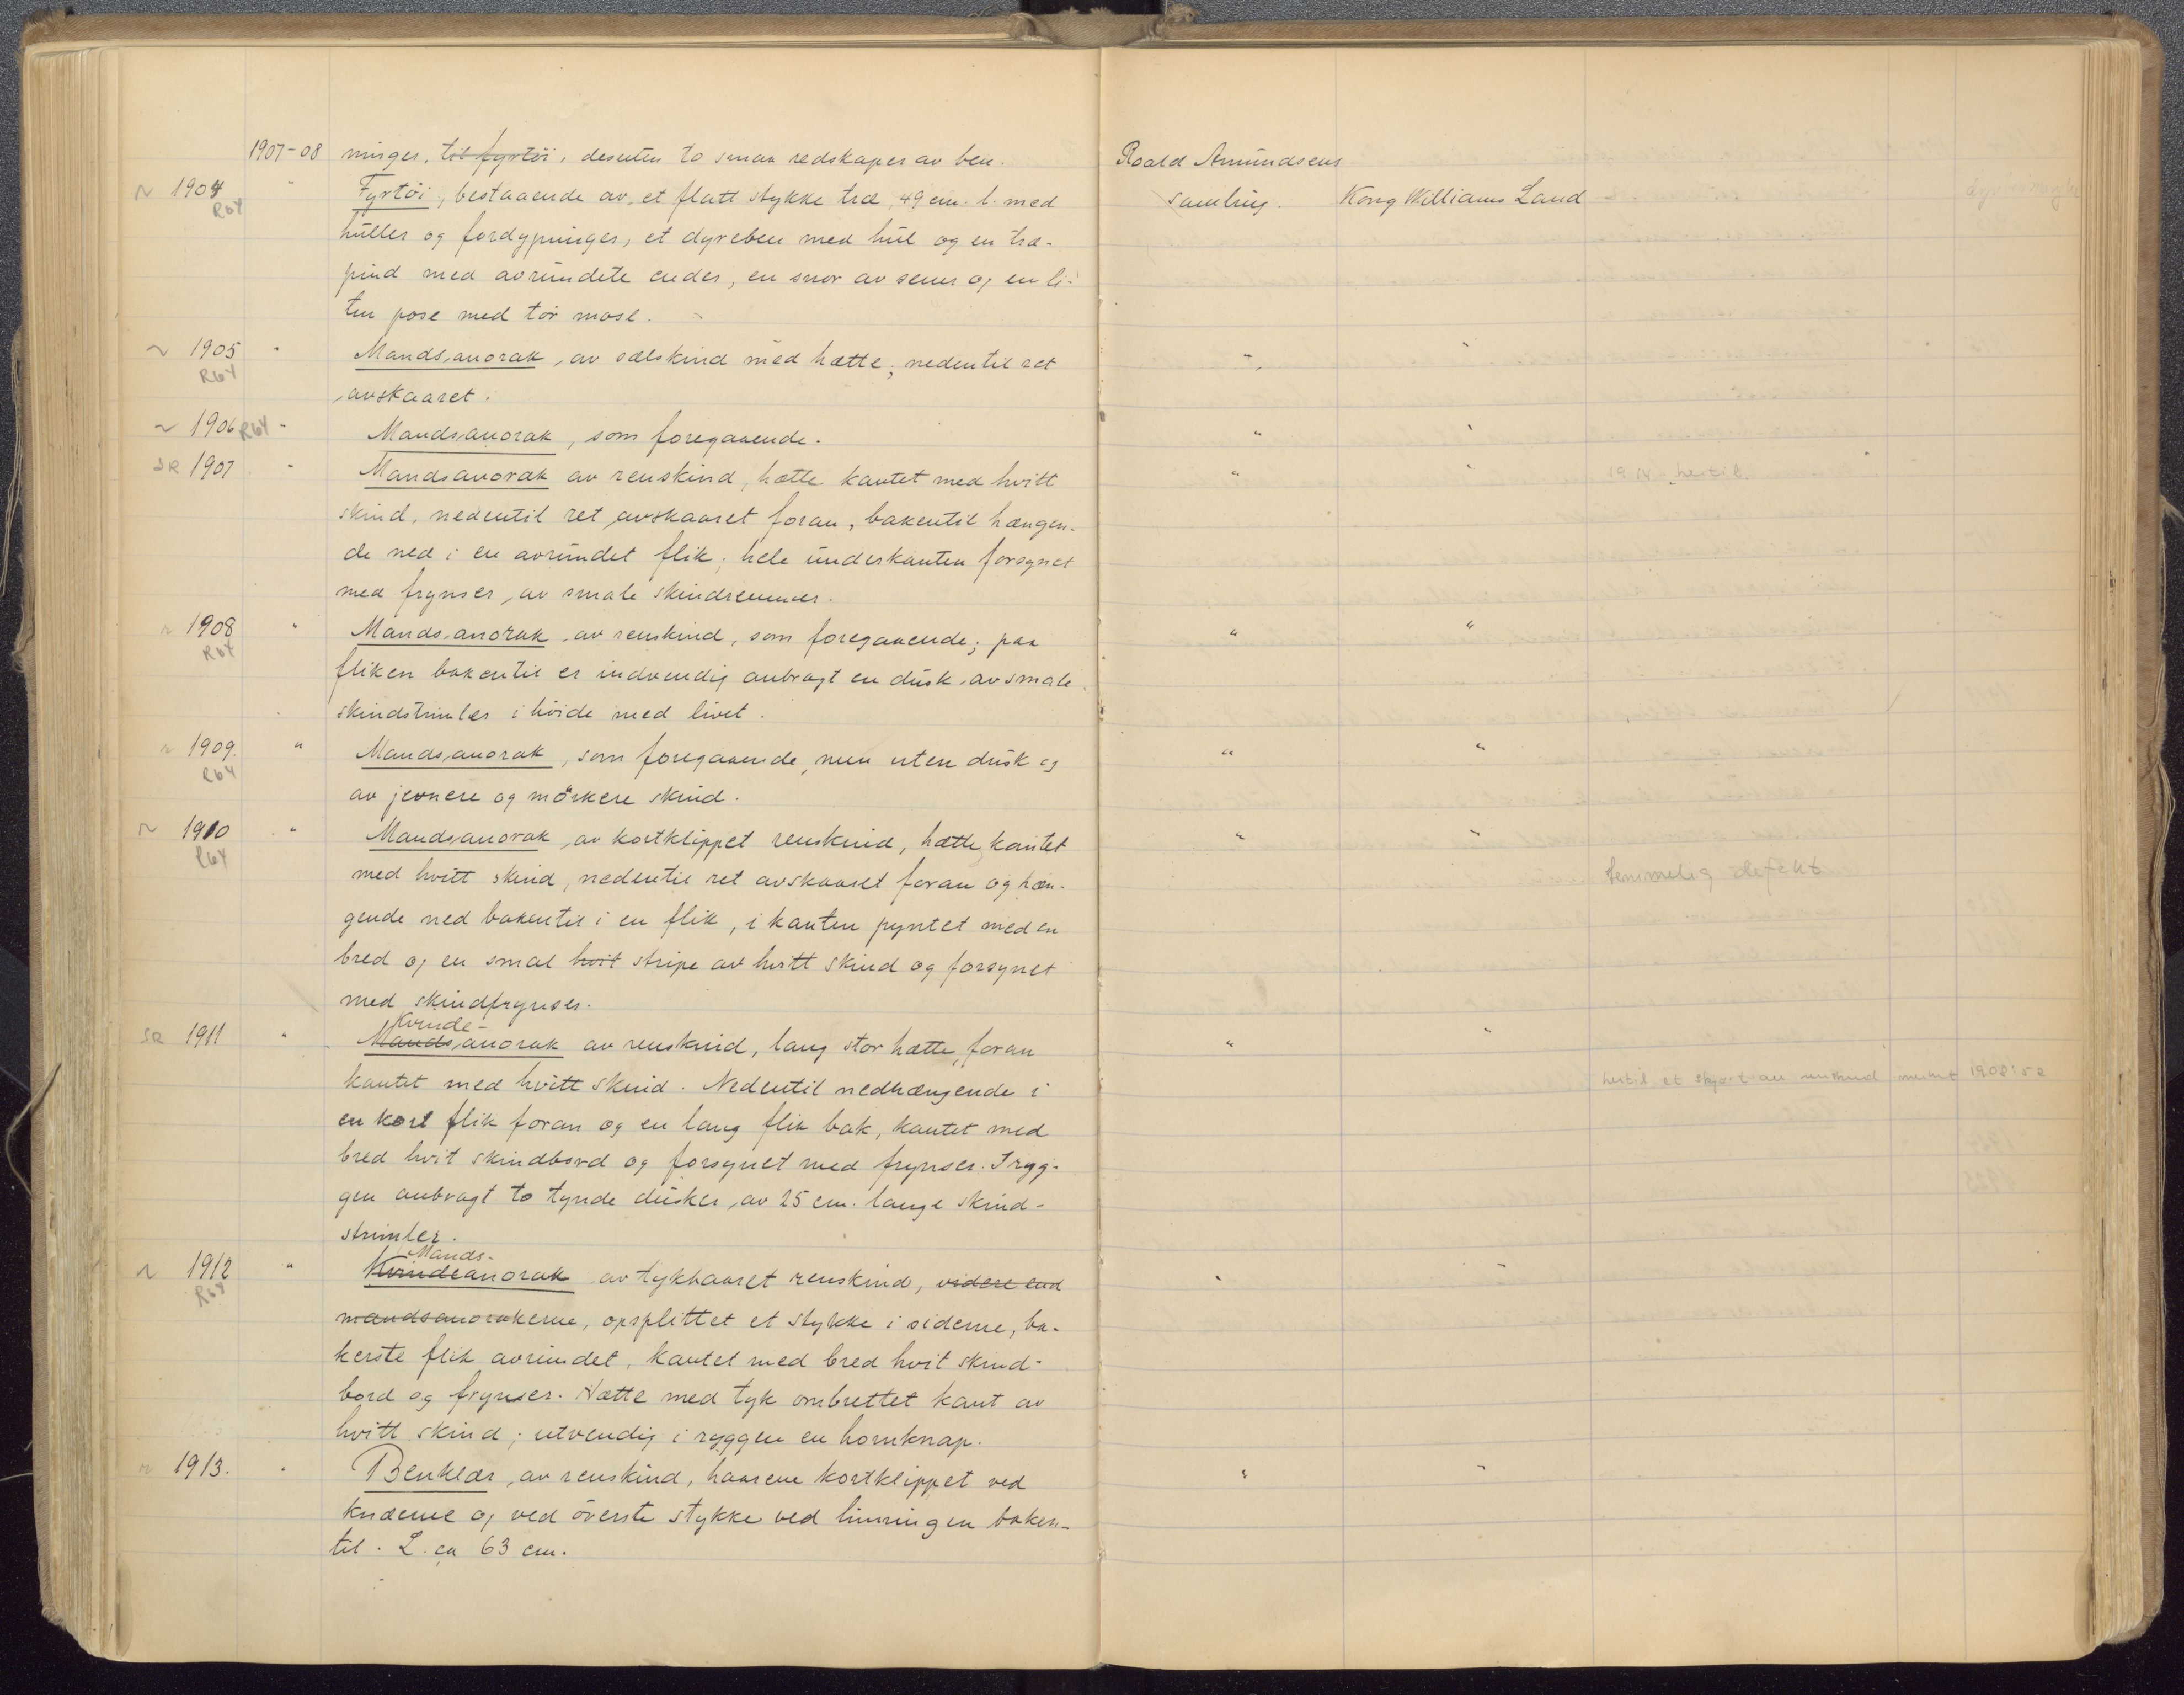 1907-08 ninger, til fyrtöi, desuten to smaa redskaper av ben. Roald Amundsens
N 1904 " Fyrtöi, bestaaende av et flatt stykke træ, 49 cm. l. med samling. Kong Williams Land
R64
huller og fordypninger, et dyreben med hul og en træ-
pind med avrundete ender, en snor av sener og en li-
ten pose med tör mose.
~ 1905 " Mandsanorak, av sælskind med hætte, nedentil ret " "
R64
avskaaret.
~ 1906 R64 " Mandsanorak, som foregaaende. " "
SR 1907 " Mandsanorak av renskind, hætte kantet med hvitt " " 1914 hertil
skind, nedentil ret avskaaret foran, bakentil hængen-
de ned i en avrundet flik; hele underkanten forsynet
med frynser, av smale skindremmer.
N 1908 " Mandsanorak av renskind, som foregaaende; paa " "
R64
fliken bakentil er indvendig anbragt en dusk av smale
skindstrimler i höide med livet.
N 1909. " Mandsanorak, som foregaaende, men uten dusk og " "
R64
av jevnere og mörkere skind.
N 1910 " Mandsanorak, av kortklippet renskind, hætte kantet " "
R64
med hvitt skind, nedentil ret avskaaret foran og hæn- temmelig defekt
gende ned bakentil i en flik, i kanten pyntet med en
bred og en smal hvit stripe av hvitt skind og forsynet
med skindfrynser.
Kvinde-
SR 1911 " Mandsanorak av renskind, lang stor hætte, foran " "
kantet med hvitt skind. Nedentil nedhængende i hertil et skjört av renskind merket 1908:52
en kort flik foran og en lang flik bak, kantet med
bred hvit skindbord og forsynet med frynser. I ryg-
gen anbragt to tynde dusker, av 25 cm. lange skind-
strimler.
Mands-
N 1912 " Kvindeanorak av tykhaaret renskind, videre end " "
R64
mandsanorakerne, opsplittet et stykke i siderne, ba-
kerste flik avrundet, kantet med bred hvit skind-
bord og frynser. Hætte med tyk ombrettet kant av
hvitt skind; utvendig i ryggen en hornknap.
N 1913. " Benklær, av renskind, haarene kortklippet ved " "
knæerne og ved överste stykke ved linningen baken-
til. L. ca 63 cm.